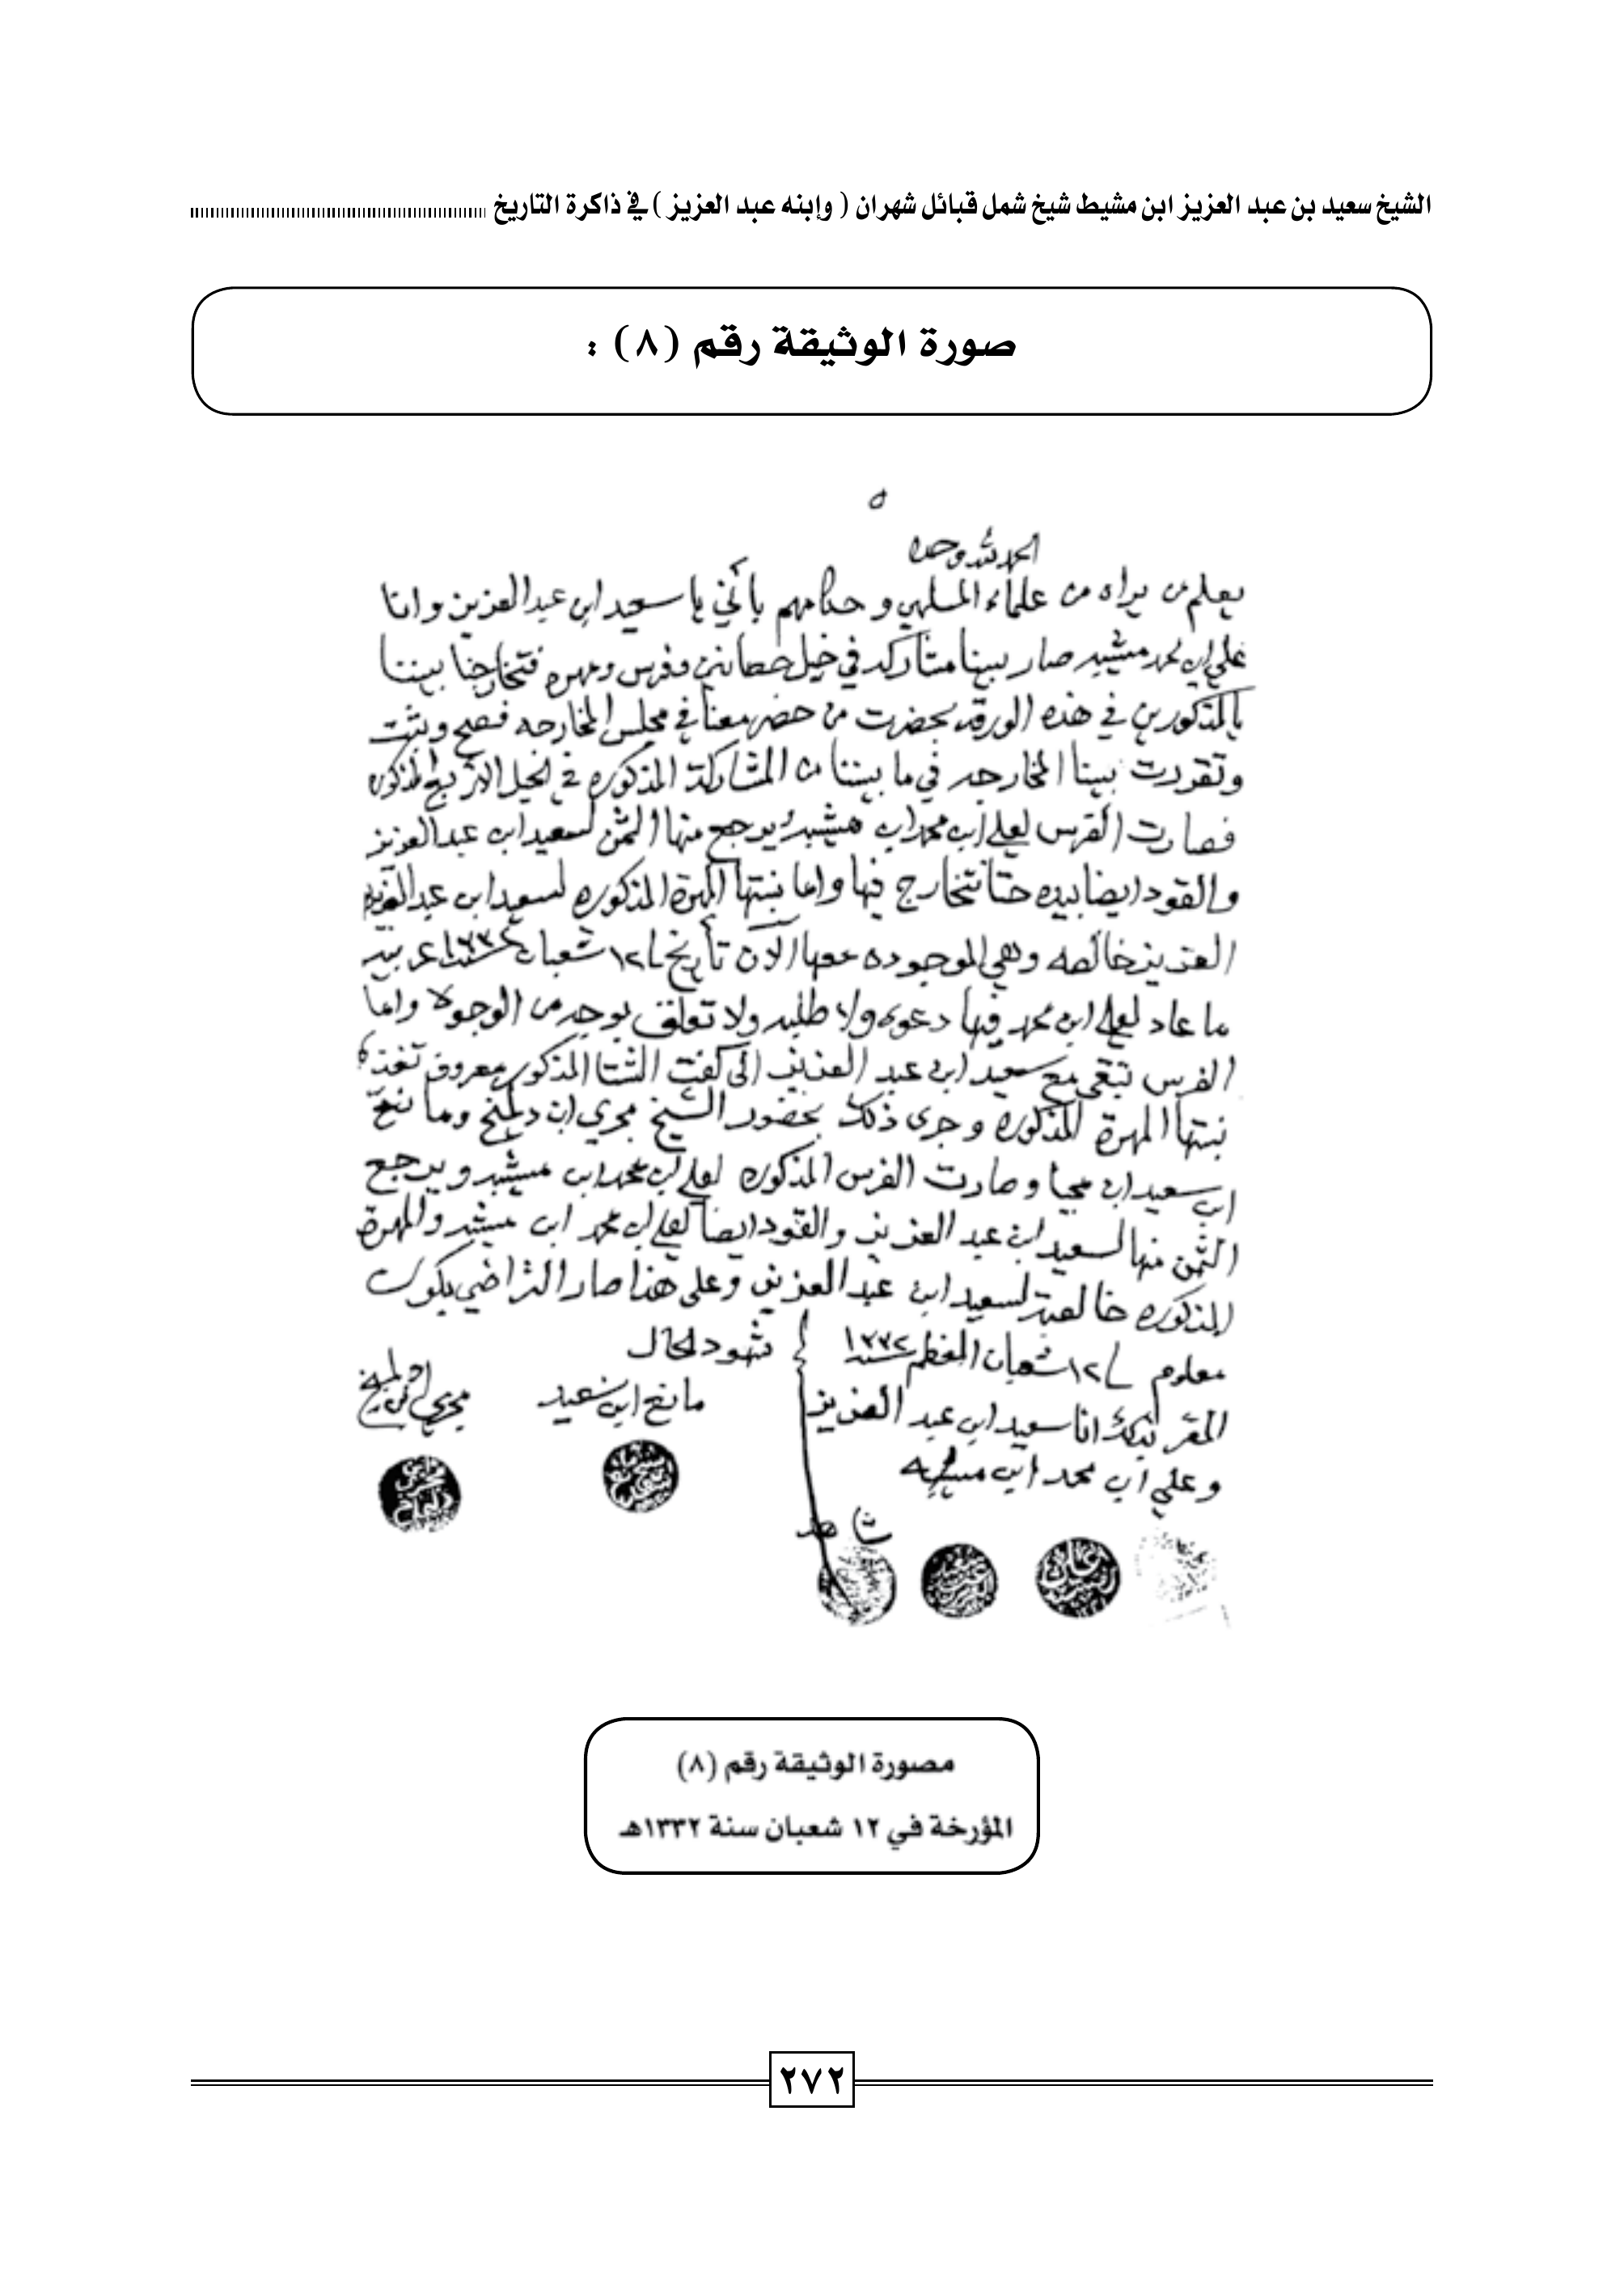 الشيخ سعيد بن عبد العزيز ابن مشيط شيخ شمل قبائل شهران ( وإبنه عبد العزيز ) في ذاكرة التاريخ
صورة الوثيقة رقم (٨) :
الحمد لله وحده
يعلم من يراه من علماء المسلمين وحكامهم بأني يا سعيد ابن عبد العزيز وانا
علي ابن محمد مشبب صار بيننا مشاركه في خيل حصانين وفرس ومهره فتخارجنا بيننا
بالمذكورين في هذه الورقه بحضرت من حضر معنا في مجلس المخارجه فصح وثبت
وتقررت بيننا المخارجه في ما بيننا من المشاركة المذكوره في الخيل الاربع المذكوره
فصارت الفرس لعلي ابن محمد ابن مشبب ويرجع منها الثمن لسعيد ابن عبد العزيز
والقود ايضا بيده حتا نتخارج فيها واما بنتها المهرة المذكوره لسعيد ابن عبد العزيز
العزيز خالصه وهي الموجوده معها الآن تأريخ ١٢ شعبان سنة ١٣٣٢ عربيه
ما عاد لعلي ابن محمد فيها دعوه ولا طلبه ولا تعلق بوجه من الوجوه واما
الفرس تبقى مع سعيد ابن عبد العزيز الى الشتا المذكور معروف
بنتها المهرة المذكوره وجرى ذلك بحضور الشيخ مجري ابن دلمخ ومانع
ابن سعيد ابن محيا وصارت الفرس المذكوره لعلي ابن محمد ابن مشبب ويرجع
الثمن منها لسعيد ابن عبد العزيز والقود ايضا لعلي ابن محمد ابن مشبب والمهرة
المذكوره خالصة لسعيد ابن عبد العزيز وعلى هذا صار التراضي يكون
معلوم ١٢ شعبان المعظم سنة ١٣٣٢ شهود الحال
المقر بذلك انا سعيد ابن عبد العزيز مانع ابن سعيد مجري ابن دلمخ
وعلي ابن محمد ابن مشبب
شاهد
مصورة الوثيقة رقم (٨)
المؤرخة في ١٢ شعبان سنة ١٣٣٢هـ
٢٧٢